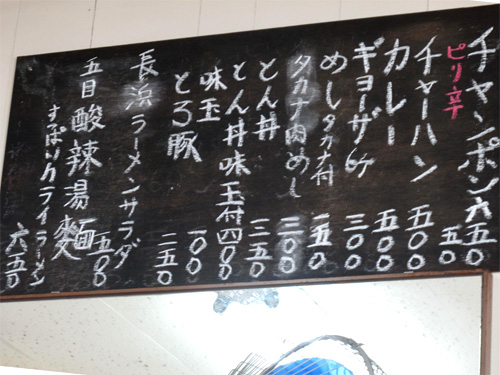 チャンポン 六五〇
ピリ辛 五〇
チャーハン 五〇〇
カレー 五〇〇
ギョーザ 6ケ 三〇〇
めしタカナ付 一五〇
タカナ肉めし 三〇〇
とん丼 三五〇
とん丼味玉付 四〇〇
味玉 一〇〇
とろ豚
長浜ラーメンサラダ 二五〇
五目酸辣湯麺 五〇〇
すっぱりクライラーメン 六五〇